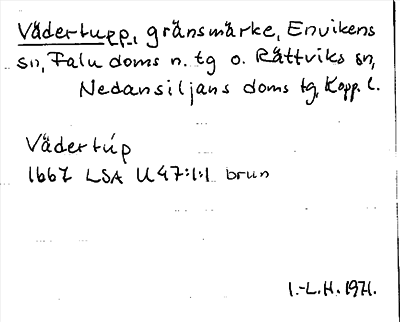 Vädertupp, gränsmärke, Envikens
sn, Falu doms n. tg o. Rättviks sn,
Nedansiljans doms tg, Kopp. l.
Vädertúp
1667 LSA U47:1:1 brun
I.-L.H. 1971.